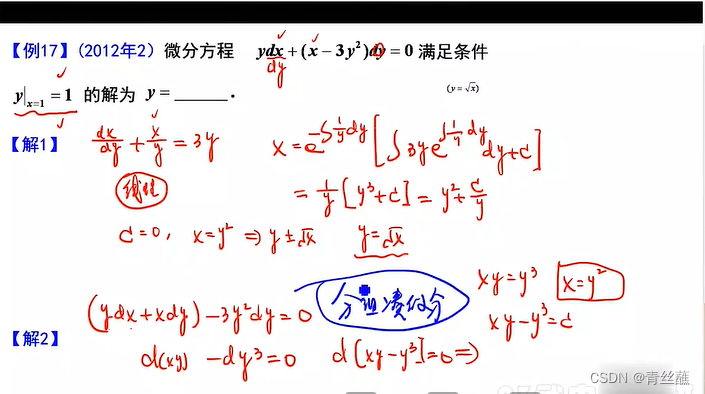 【例17】(2012年2) 微分方程 ydx+(x−3y²)dy=0 满足条件
dy
y|ₓ₌₁=1 的解为 y=______.
(y=√x)
【解1】 dx/dy + x/y = 3y
x=e^(-∫1/y dy)[∫3ye^(∫1/y dy)dy+C]
线性
=1/y[y³+C]=y²+C/y
C=0, x=y² ⇒ y=±√x y=√x
分组凑微分
xy=y³ x=y²
(ydx+xdy)−3y²dy=0
xy−y³=C
【解2】
d(xy) −dy³=0 d[xy−y³]=0⇒
CSDN @青丝蘸